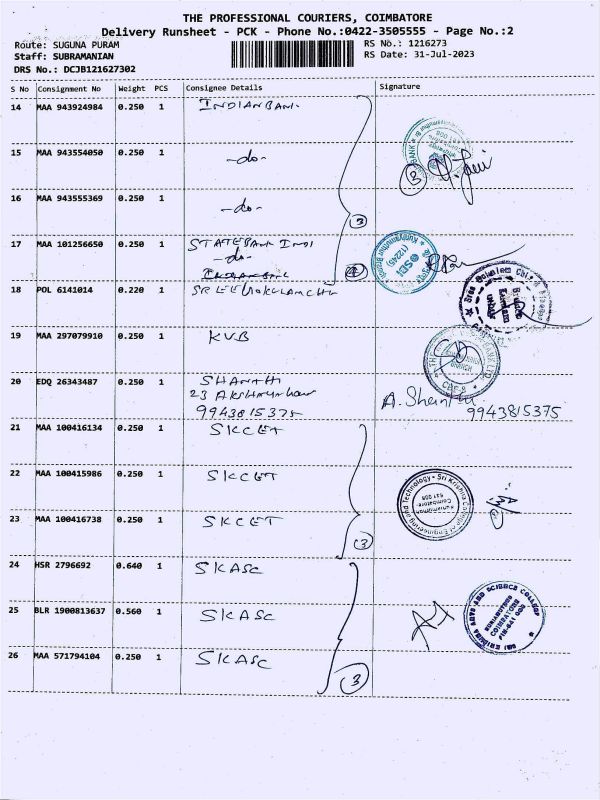 THE PROFESSIONAL COURIERS, COIMBATORE
Delivery Runsheet - PCK - Phone No.:0422-3505555 - Page No.:2
Route: SUGUNA PURAM RS No.: 1216273
Staff: SUBRAMANIAN RS Date: 31-Jul-2023
DRS No.: DCJB121627302
S No Consignment No Weight PCS Consignee Details Signature
14 MAA 943924984 0.250 1 INDIANBANK
15 MAA 943554050 0.250 1 -do-
3
16 MAA 943555369 0.250 1 -do-
3
17 MAA 101256650 0.250 1 STATEBANK INDI
-do-
SBI
(12245)
18 POL 6141014 0.220 1
19 MAA 297079910 0.250 1 KVB
20 EDQ 26343487 0.250 1 SHANTHI
23
9943815375
A. Shanthi
9943815375
21 MAA 100416134 0.250 1 SKCET
22 MAA 100415986 0.250 1 SKCET
Sri Krishna College of Engineering and Technology
Kuniamuthur
Coimbatore
641 008
23 MAA 100416738 0.250 1 SKCET
3
24 HSR 2796692 0.640 1 SKASC
25 BLR 1900813637 0.560 1 SKASC
SRI KRISHNA ARTS AND SCIENCE COLLEGE
KUNIAMUTHUR
COIMBATORE
PIN-641 008
26 MAA 571794104 0.250 1 SKASC
3